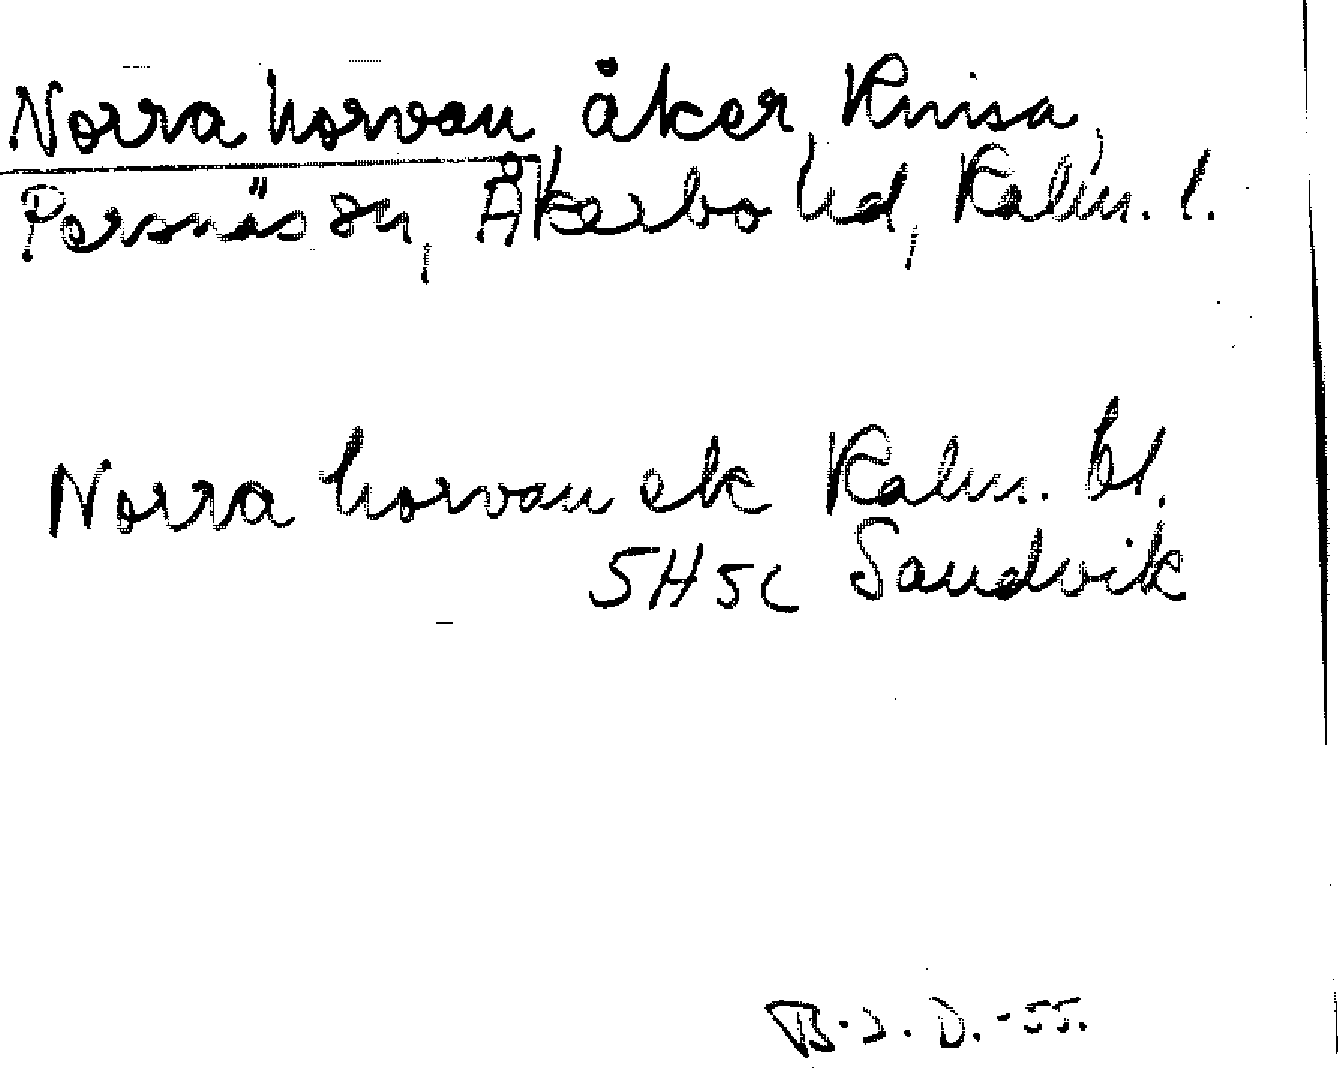 Norra horvan, åker, Knisa,
Persnäs sn, Åkerbo hd, Kalm. l.
Norra horvan ek Kalm. bl.
5H5c Sandvik
B.J.D.-55.